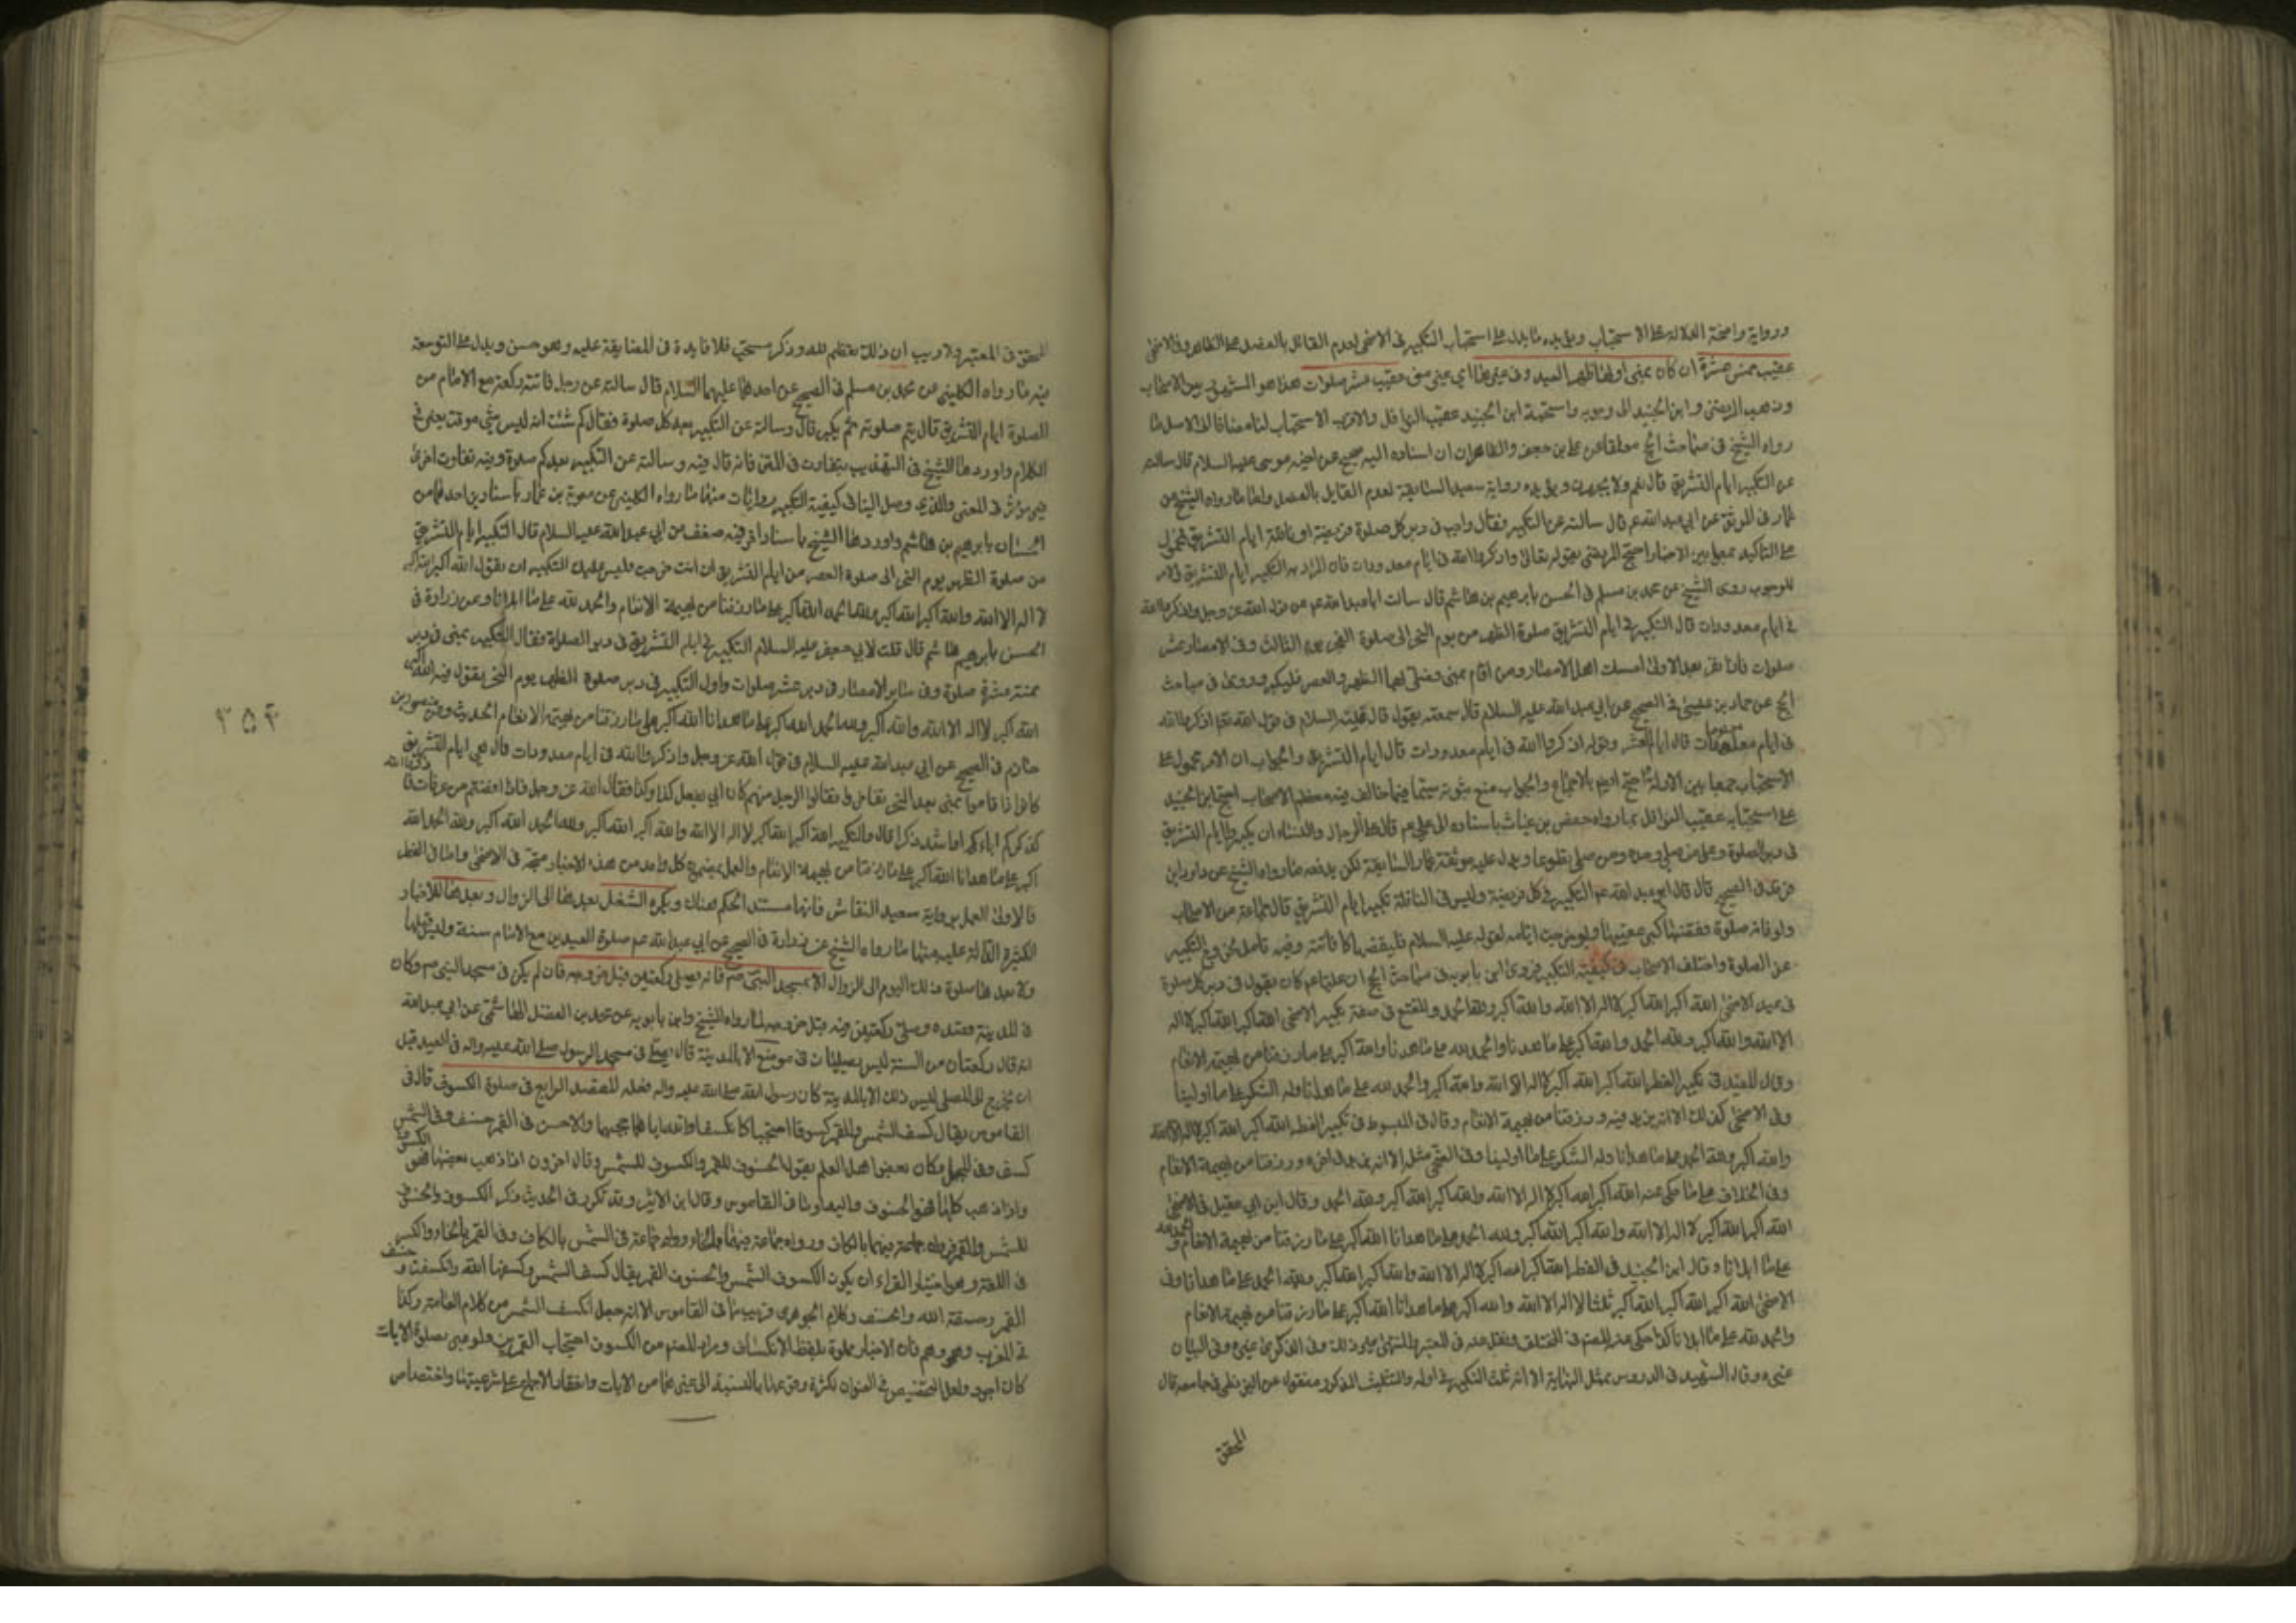 ورواية واضحة الدلالة على الاستحباب ويؤيده ما يدل على استحباب التكبير في الاضحى لعدم القائل بالفصل على الظاهر وفي الاضحى
عقيب خمس عشرة ان كان بمنى اولها ظهر العيد وفي غيرها اي غير منى عقيب عشر صلوات هذا هو المشهور بين الاصحاب
وذهب المرتضى وابن الجنيد الى وجوبه واستحبه ابن الجنيد عقيب النوافل والاقرب الاستحباب لنا مضافا الى الاصل ما
رواه الشيخ في مباحث الحج معلقا عن علي بن جعفر والظاهر ان اسناده اليه صحيح عن اخيه موسى عليه السلام قال سالته
عن التكبير ايام التشريق قال نعم ولا يجهر ويؤيده رواية سعيد السابقة لعدم القايل بالفصل واما ما رواه الشيخ عن
عمار في الموثق عن ابي عبد الله عم قال سالته عن التكبير فقال واجب في دبر كل صلوة فريضة او نافلة ايام التشريق فمحمول
على التاكيد جمعا بين الاخبار احتج المرتضى بقوله تعالى واذكروا الله في ايام معدودات فان المراد به التكبير ايام التشريق والامر
للوجوب روى الشيخ عن محمد بن مسلم في الحسن بابرهيم بن هاشم قال سالت ابا عبد الله عم عن قول الله عز وجل واذكروا الله
في ايام معدودات قال التكبير في ايام التشريق صلوة الظهر من يوم النحر الى صلوة الفجر يوم الثالث وفي الامصار عشر
صلوات فاذا نفر بعد الاولى امسك اهل الامصار ومن اقام بمنى وصلى بها الظهر والعصر فليكبر وروى في مباحث
الحج عن حماد بن عيسى في الصحيح عن ابي عبد الله عليه السلام قال سمعته يقول قال علي عليه السلام في قول الله تعالى اذكروا الله
في ايام معلومات قال ايام العشر وقوله اذكروا الله في ايام معدودات قال ايام التشريق والجواب ان الامر محمول على
الاستحباب جمعا بين الادلة احتج ايضا بالاجماع والجواب منع ثبوته سيما فيما خالف فيه معظم الاصحاب احتج ابن الجنيد
على استحبابه عقيب النوافل بما رواه حفص بن غياث باسناده الى علي عم قال على الرجال والنساء ان يكبروا ايام التشريق
في دبر الصلوة وعلى من صلى وحده ومن صلى تطوعا ويدل عليه موثقة عمار السابقة لكن يدفعه ما رواه الشيخ عن داود بن
فرقد في الصحيح قال قال ابو عبد الله عم التكبير في كل فريضة وليس في النافلة تكبير ايام التشريق قال جماعة من الاصحاب
ولو فاته صلوة فقضاها كبر عقيبها ولو خرجت ايامه لقوله عليه السلام فليقضها كما فاتته وفيه تامل لخروج التكبير
عن الصلوة واختلف الاصحاب في كيفية التكبير فروى ابن بابويه في مباحث الحج ان عليا عم كان يقول في دبر كل صلوة
في عيد الاضحى الله اكبر الله اكبر لا اله الا الله والله اكبر ولله الحمد وللمقنع في صفة تكبير الاضحى الله اكبر الله اكبر لا اله
الا الله والله اكبر ولله الحمد والله اكبر على ما هدانا والحمد لله على ما هدانا والله اكبر على ما رزقنا من بهيمة الانعام
وقال المفيد في تكبير الفطر الله اكبر الله اكبر لا اله الا الله والله اكبر والحمد لله على ما هدانا وله الشكر على ما اولينا
وفي الاضحى كذلك الا انه يزيد فيه ورزقنا من بهيمة الانعام وقال في المبسوط في تكبير الفطر الله اكبر الله اكبر لا اله الا الله
والله اكبر ولله الحمد على ما هدانا وله الشكر على ما اولينا وفي الاضحى مثله الا انه يزيد في اخره ورزقنا من بهيمة الانعام
وفي الخلاف على ما حكى عنه الله اكبر الله اكبر لا اله الا الله والله اكبر الله اكبر ولله الحمد وقال ابن ابي عقيل في الاضحى
الله اكبر الله اكبر لا اله الا الله والله اكبر الله اكبر ولله الحمد على ما هدانا الله اكبر على ما رزقنا من بهيمة الانعام والحمد لله
على ما ابلانا وقال ابن الجنيد في الفطر الله اكبر الله اكبر لا اله الا الله والله اكبر الله اكبر ولله الحمد على ما هدانا وفي
الاضحى الله اكبر الله اكبر الله اكبر ثلثا لا اله الا الله والله اكبر على ما هدانا الله اكبر على ما رزقنا من بهيمة الانعام
والحمد لله على ما ابلانا كذا حكى عنه المصنف في المختلف ونقل عنه في المعتبر والمنتهى غير ذلك وفي الذكرى غيره وفي البيان
غيره وقال الشهيد في الدروس بمثل النهاية الا انه ثلث التكبير في اوله والتثليث المذكور منقول عن البزنطي في جامعه قال
المحقق
المحقق في المعتبر ولا ريب ان ذلك تعظيم لله وذكر مستحب فلا فايدة في المضايقة عليه وهو حسن ويدل على التوسعة
فيه ما رواه الكليني عن محمد بن مسلم في الصحيح عن احدهما عليهما السلام قال سالته عن رجل فاتته ركعة مع الامام من
الصلوة ايام التشريق قال يتم صلوته ثم يكبر قال وسالته عن التكبير بعد كل صلوة فقال كم شئت انه ليس شيء موقت يعني في
الكلام واوردها الشيخ في التهذيب بتفاوت في المتن فانه قال فيه وسالته عن التكبير بعد كم صلوة وفيه تفاوت اخر
غير مؤثر في المعنى والذي وصل الينا في كيفية التكبير روايات منها ما رواه الكليني عن معوية بن عمار باسنادين احدهما من
الحسان بابرهيم بن هاشم واوردها الشيخ باسناد اخر فيه ضعف عن ابي عبد الله عليه السلام قال التكبير ايام التشريق
من صلوة الظهر يوم النحر الى صلوة العصر من ايام التشريق ان انت خرجت وليس عليك التكبير ان تقول الله اكبر الله اكبر
لا اله الا الله والله اكبر الله اكبر ولله الحمد الله اكبر على ما رزقنا من بهيمة الانعام والحمد لله على ما ابلانا وعن زرارة في
الحسن بابرهيم بن هاشم قال قلت لابي جعفر عليه السلام التكبير في ايام التشريق في دبر الصلوة فقال التكبير بمنى في دبر
خمسة عشرة صلوة وفي سائر الامصار في دبر عشر صلوات واول التكبير في دبر صلوة الظهر يوم النحر يقول فيه الله اكبر
الله اكبر لا اله الا الله والله اكبر ولله الحمد الله اكبر على ما هدانا الله اكبر على ما رزقنا من بهيمة الانعام الحديث وعن منصور بن
حازم في الصحيح عن ابي عبد الله عليه السلام في قول الله عز وجل واذكروا الله في ايام معدودات قال هي ايام التشريق
كانوا اذا قاموا بمنى بعد النحر تفاخروا فقال الرجل منهم كان ابي يفعل كذا وكذا فقال الله عز وجل فاذا افضتم من عرفات فاذكروا الله
كذكركم اباءكم او اشد ذكرا قال والتكبير الله اكبر الله اكبر لا اله الا الله والله اكبر الله اكبر ولله الحمد الله اكبر ولله الحمد الله
اكبر على ما هدانا الله اكبر على ما رزقنا من بهيمة الانعام والعمل بمضمون كل واحد من هذه الاخبار متجه في الاضحى واما في الفطر
فالاولى العمل برواية سعيد النقاش فانها مستند الحكم هناك ويكره التنفل بعدها الى الزوال وقبلها للاخبار
الكثيرة الدالة عليه منها ما رواه الشيخ عن زرارة في الصحيح عن ابي عبد الله عم صلوة العيدين مع الامام سنة وليس قبلها
ولا بعدها صلوة ذلك اليوم الى الزوال الا بمسجد النبي صم فانه يصلي ركعتين قبل خروجه فان لم يكن في مسجد النبي صم وكان
في المدينة قصده وصلى ركعتين فيه قبل خروجه لما رواه الشيخ وابن بابويه عن محمد بن الفضل الهاشمي عن ابي عبد الله
انه قال ركعتان من السنة ليس يصليان في موضع الا بالمدينة قال يصلى في مسجد الرسول صلى الله عليه واله في العيد قبل
ان يخرج الى المصلى ليس ذلك الا بالمدينة كان رسول الله صلى الله عليه واله فعله المقصد الرابع في صلوة الكسوف قال في
القاموس يقال كسف الشمس والقمر كسوفا احتجبا كانكسفا والله اياهما حجبهما والاحسن في القمر خسف وفي الشمس
كسف وفي المجمل وكان بعض اهل العلم يقول الخسوف للقمر والكسوف للشمس وقال اخرون اذا ذهب بعضها فهو الكسوف
واذا ذهب كلها فهو الخسوف واليه اومأ في القاموس وقال ابن الاثير وقد تكرر في الحديث ذكر الكسوف والخسوف
للشمس والقمر فرواه جماعة فيهما بالكاف ورواه جماعة فيهما بالخاء ورواه جماعة في الشمس بالكاف وفي القمر بالخاء والكثير
في اللغة وهو اختيار الفراء ان يكون الكسوف للشمس والخسوف للقمر يقال كسف الشمس وكسفها الله وانكسفت وخسف
القمر وخسفه الله وانخسف وكلام الجوهري قريب مما في القاموس الا انه جعل انكسف الشمس من كلام العامة وكذا
في المغرب وهو وهم فان الاخبار مملوة بلفظ الانكساف ومراد المصنف من الكسوف احتجاب القمرين ولو عبر بصلوة الايات
كان اجود ولعل التخصيص في العنوان لكثرة وقوعها بالنسبة الى غيرها من الايات وانعقاد الاجماع على شرعيتها واختصاص
٣٥٤